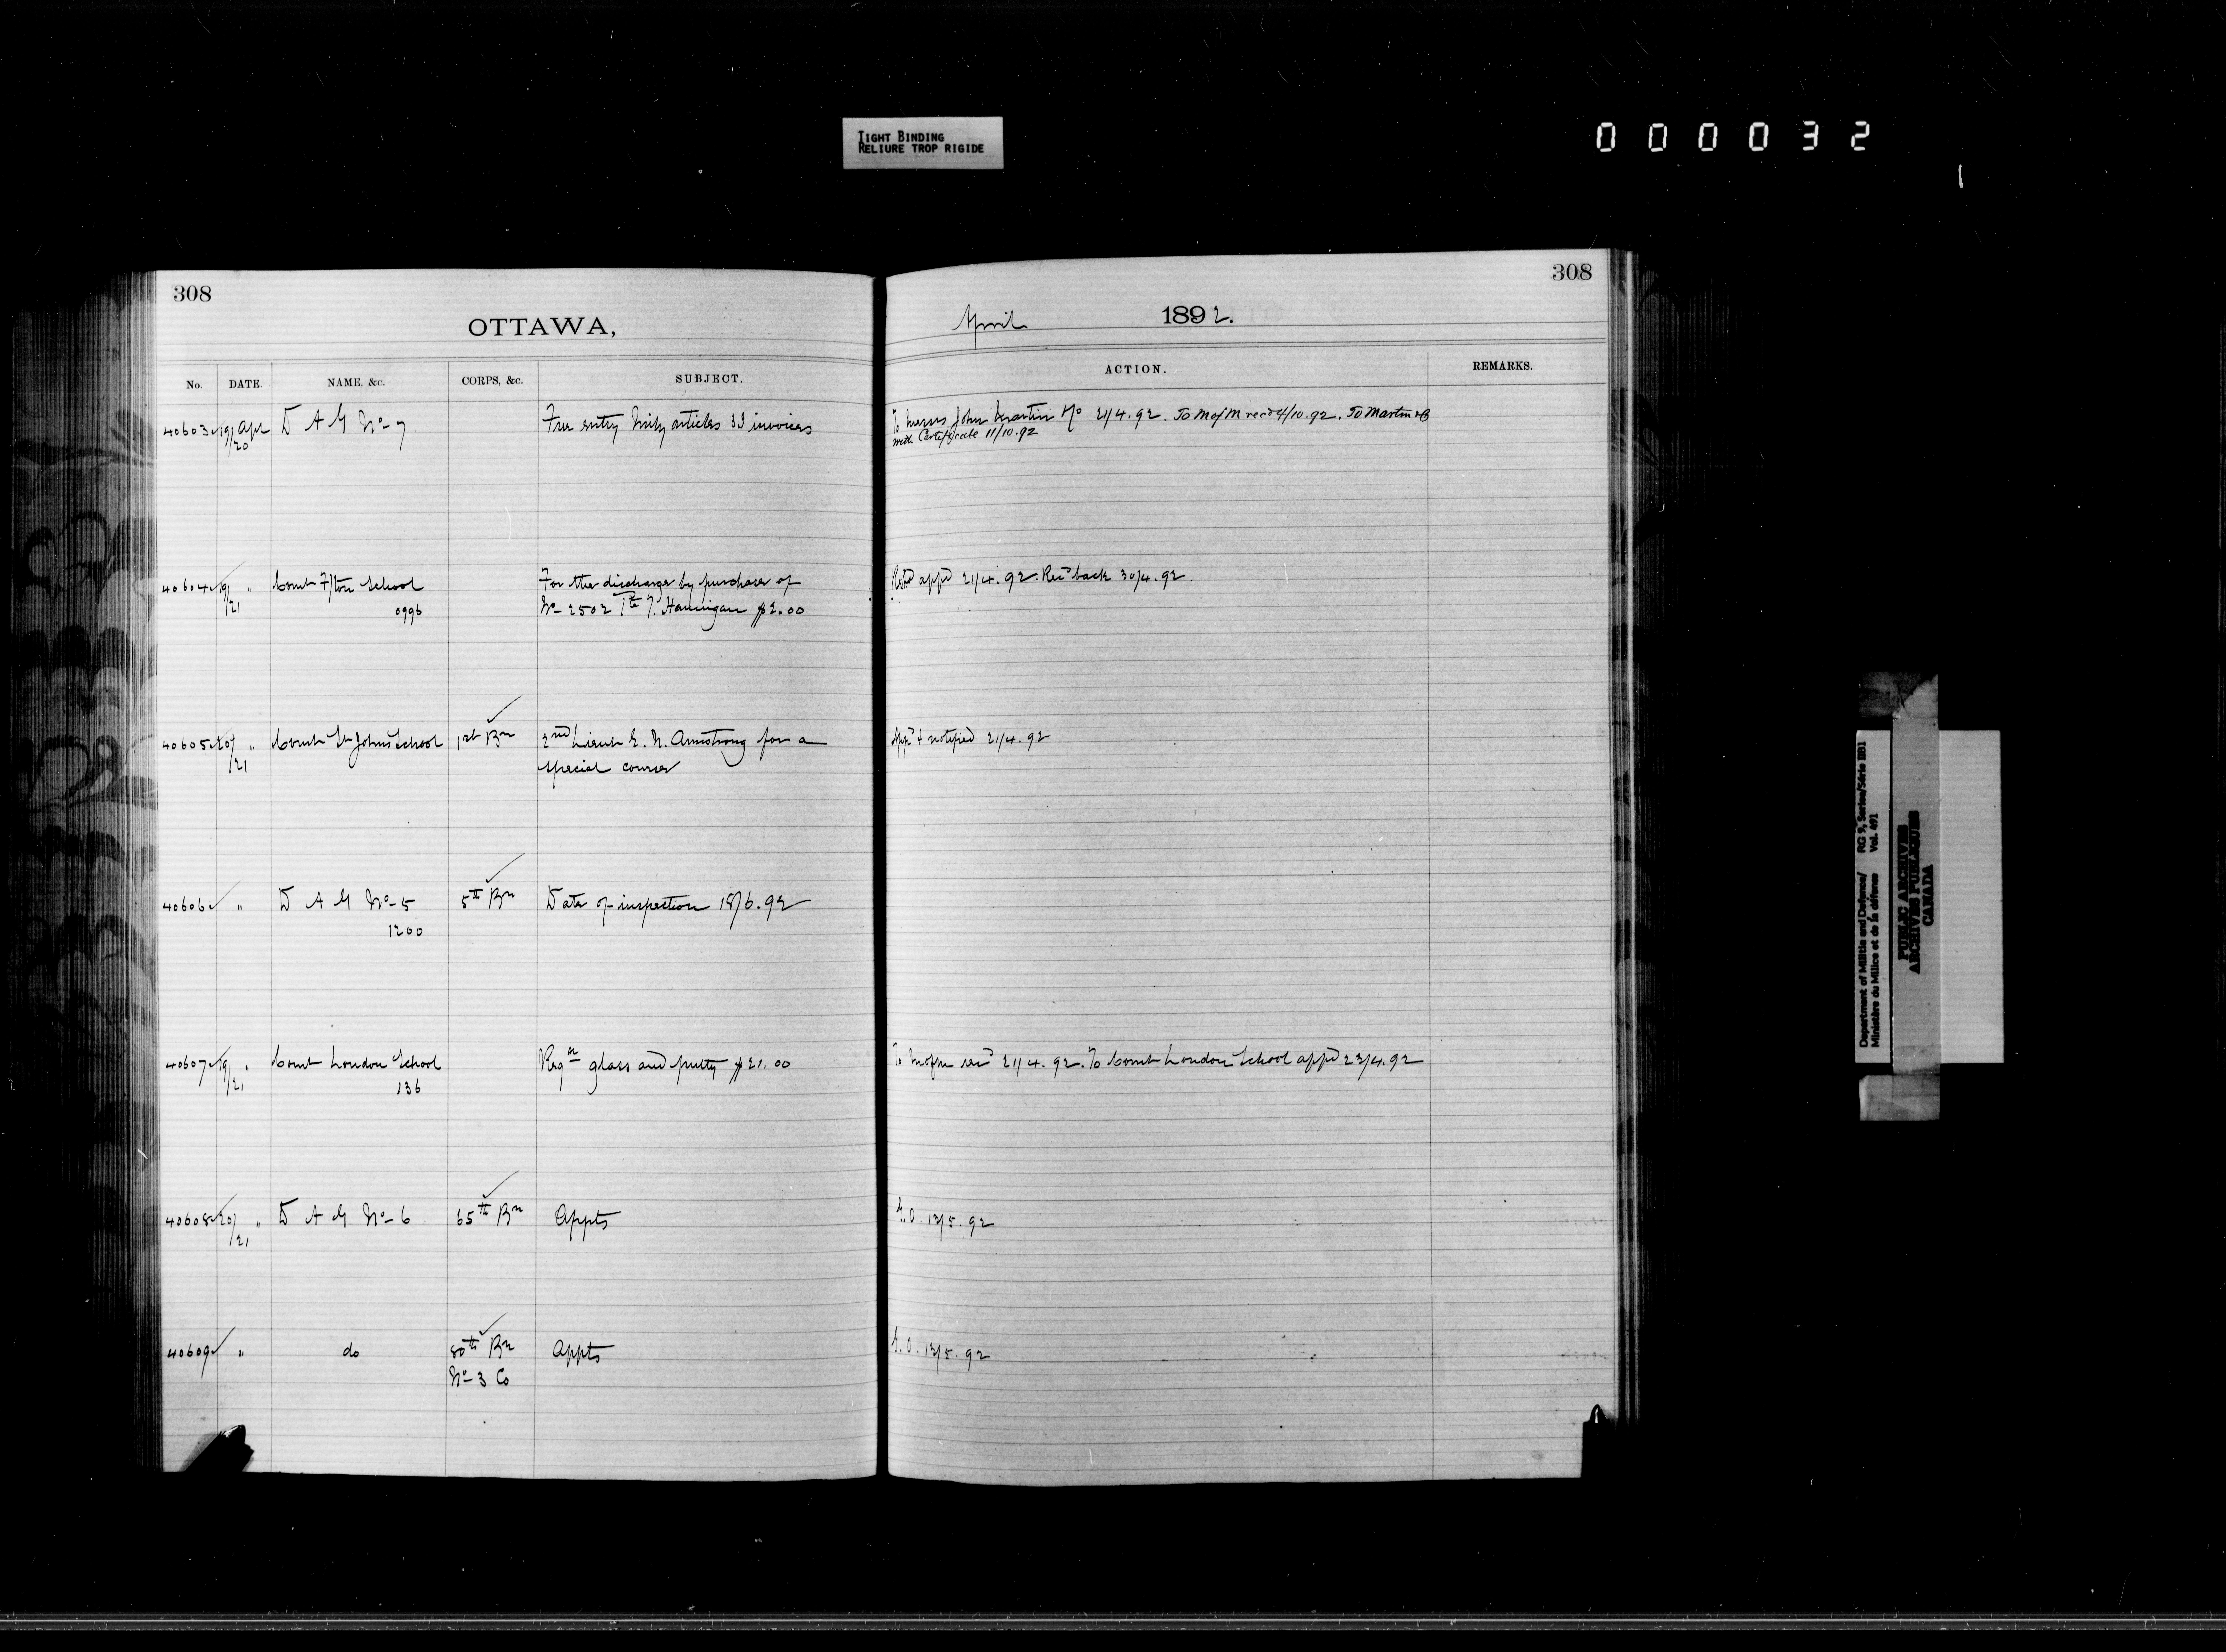 TIGHT BINDING
RELIURE TROP RIGIDE
000032
308
OTTAWA,
No. DATE. NAME, &c. CORPS, &c. SUBJECT.
40603 19/20 Apl D A G No 7 Free entry Mily articles 33 invoices
40604 19/21 " Comt Fton School For the discharge by purchase of
0996 No 2502 Pte J. Hannigan $2.00
40605 20/21 " Comt St Johns School 1st Bn 2nd Lieut E. N. Armstrong for a
special course
40606 " D A G No 5 5th Bn Date of inspection 18/6.92
1200
40607 19/21 " Comt London School Reqon glass and putty $21.00
136
40608 20/21 " D A G No 6 65th Bn Appts
40609 " do 80th Bn Appts
No 3 Co
308
April 1892.
ACTION. REMARKS.
To Messrs John Martin 21/4.92. To M of M recd 4/10.92. To Martin & Co
with Certificate 11/10.92
appd 21/4.92. Recd back 30/4.92.
Appd & notified 21/4.92
To M of M recd 21/4.92. To Comt London School appd 23/4.92
G.O. 13/5.92
G.O. 13/5.92
Department of Militia and Defence/ RG 9, Series/Série IIB1
Ministère du Milice et de la défense Vol. 491
PUBLIC ARCHIVES
ARCHIVES PUBLIQUES
CANADA